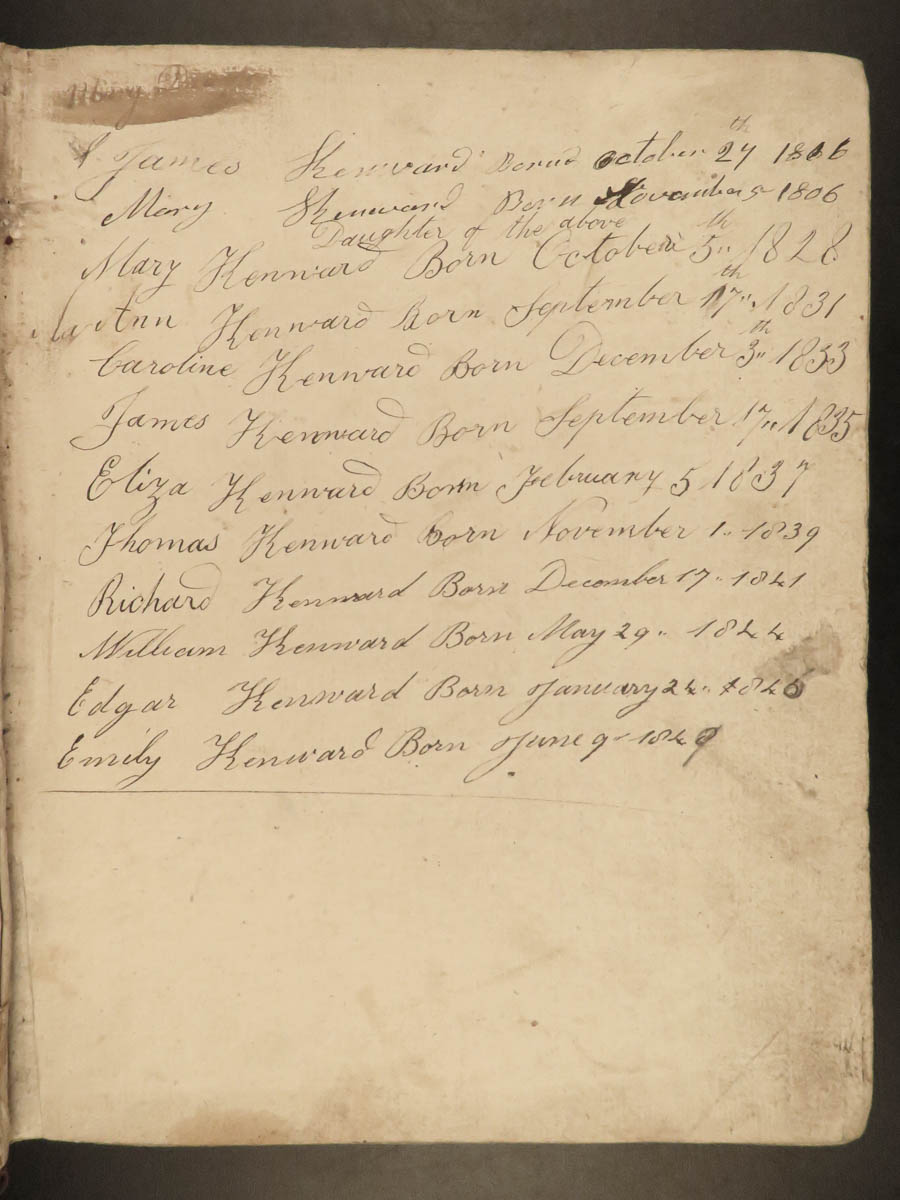 James Kenward Born October 27th 1806
Mary Kenward Born November 5 1806
Daughter of the above
Mary Kenward Born October 5th 1828
Ann Kenward Born September 17th 1831
Caroline Kenward Born December 3th 1833
James Kenward Born September 17 1835
Eliza Kenward Born February 5 1837
Thomas Kenward Born November 1 1839
Richard Kenward Born December 17 1841
William Kenward Born May 29 1844
Edgar Kenward Born January 24 1846
Emily Kenward Born June 9 1849